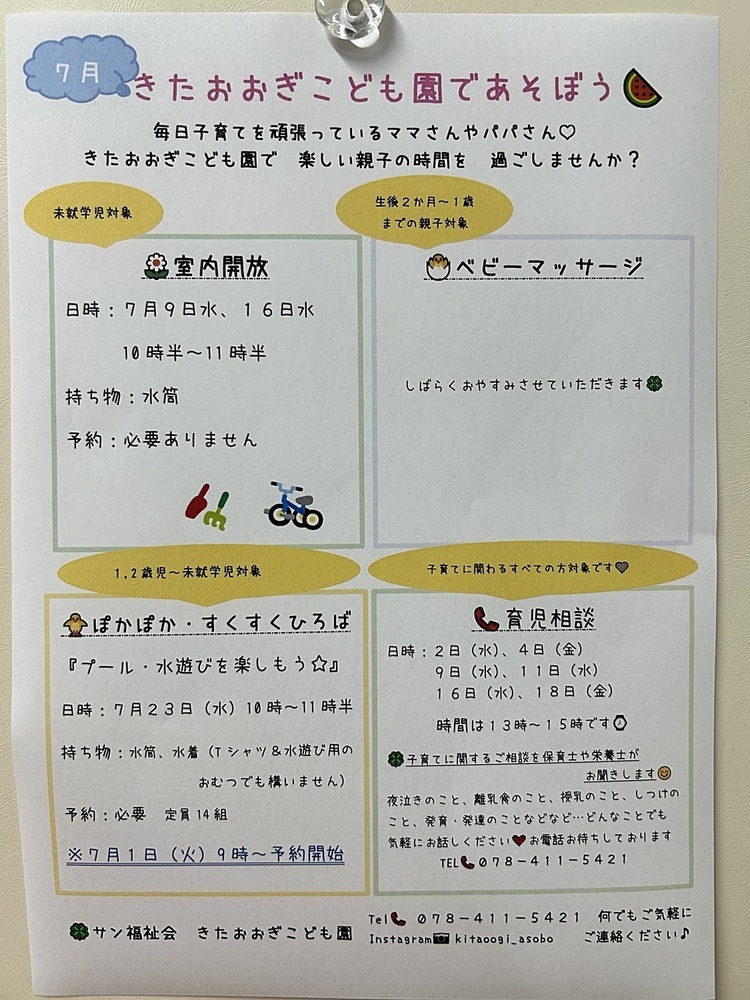 7月
きたおおぎこども園であそぼう
毎日子育てを頑張っているママさんやパパさん♡
きたおおぎこども園で 楽しい親子の時間を 過ごしませんか？
未就学児対象
室内開放
日時：７月９日水、１６日水
10時半～11時半
持ち物：水筒
予約：必要ありません
生後２か月～１歳
までの親子対象
ベビーマッサージ
しばらくおやすみさせていただきます🍀
1,2歳児～未就学児対象
ぽかぽか・すくすくひろば
『プール・水遊びを楽しもう☆』
日時：７月２３日（水）10時～11時半
持ち物：水筒、水着（Tシャツ＆水遊び用の
おむつでも構いません）
予約：必要 定員14組
※７月１日（火）９時～予約開始
子育てに関わるすべての方対象です🖤
育児相談
日時：２日（水）、４日（金）
９日（水）、１１日（水）
１６日（水）、１８日（金）
時間は１３時～１５時です
🍀子育てに関するご相談を保育士や栄養士が
お聞きします😊
夜泣きのこと、離乳食のこと、授乳のこと、しつけの
こと、発育・発達のことなどなど…どんなことでも
気軽にお話しください❤お電話お待ちしております
TEL📞０７８－４１１－５４２１
🍀サン福祉会 きたおおぎこども園
Tel📞 ０７８－４１１－５４２１ 何でもご気軽に
Instagram📷 kitaoogi_asobo ご連絡ください♪